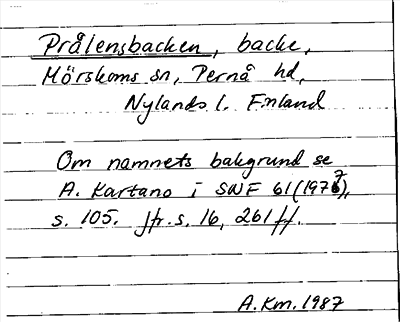 Prålensbacken, backe,
Mörskoms sn, Pernå hd,
Nylands l. Finland
Om namnets bakgrund se
A. Kartano i SNF 61 (1977),
s. 105. Jfr. s. 16, 261 ff.
A.Km. 1987